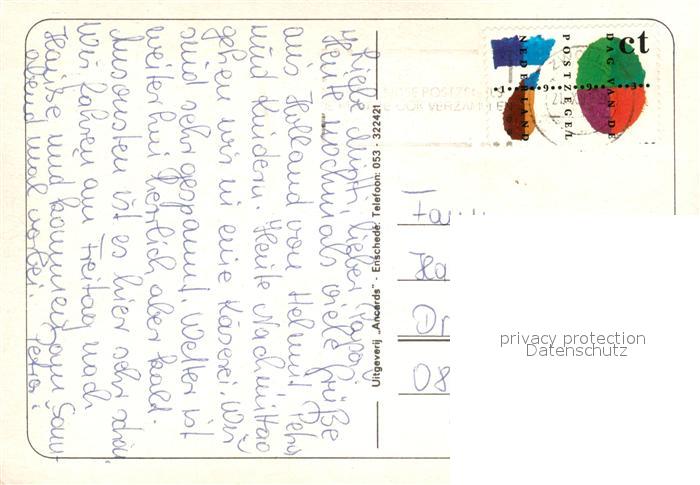 Liebe Mutti, lieber Papa,
Heute nochmals viele Grüße
aus Holland von Helmut, Petra
und Kindern. Heute Nachmittag
gehen wir in eine Käserei. Wir
sind sehr gespannt. Wetter ist
weiterhin herrlich, aber kalt.
Ansonsten ist es hier sehr schön.
Wir fahren am Freitag nach
Hause und kommen am Sams-
abend mal vorbei. Petra
Uitgeverij „Ancards" - Enschede. Telefoon: 053 - 322421
ct
DAG VAN DE
POSTZEGEL
NEDERLAND
1 9 9 3
Fa
Ha
Dr
08
privacy protection
Datenschutz